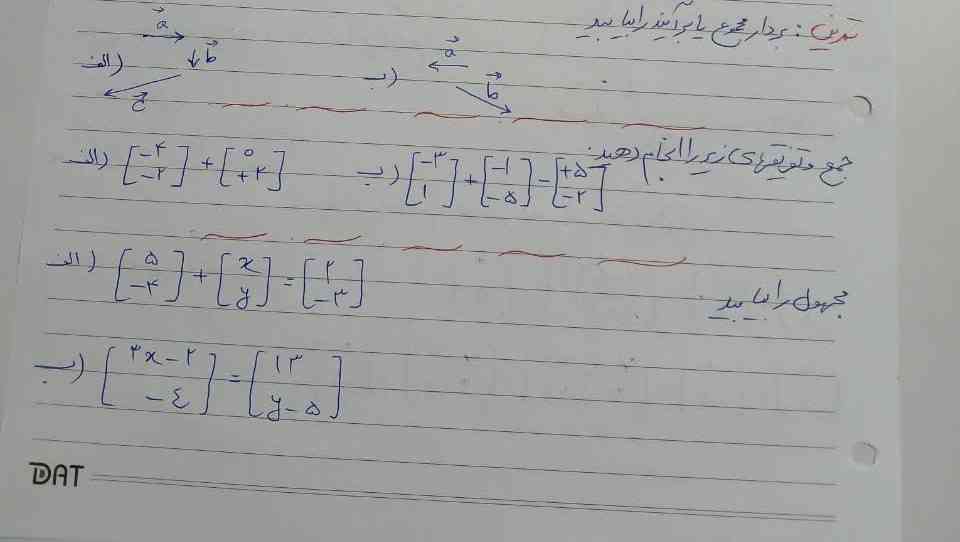 تمرین : بردار مجموع یا برآیند را بیابید
الف) a⃗ b⃗ c⃗ ب) a⃗ b⃗
جمع و تفریقهای زیر را انجام دهید.
الف) [-۴ / -۲] + [۰ / +۲] ب) [-۳ / ۱] + [-۱ / -۵] - [+۵ / -۲]
مجهول را بیابید.
الف) [۵ / -۴] + [x / y] = [۲ / -۳]
ب) [۳x-۲ / -٤] = [۱۳ / y-۵]
DAT